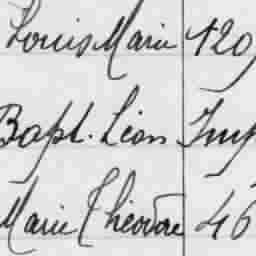 Louis Marie 120
Bapt. Léon Imp
Marie Théodore 46